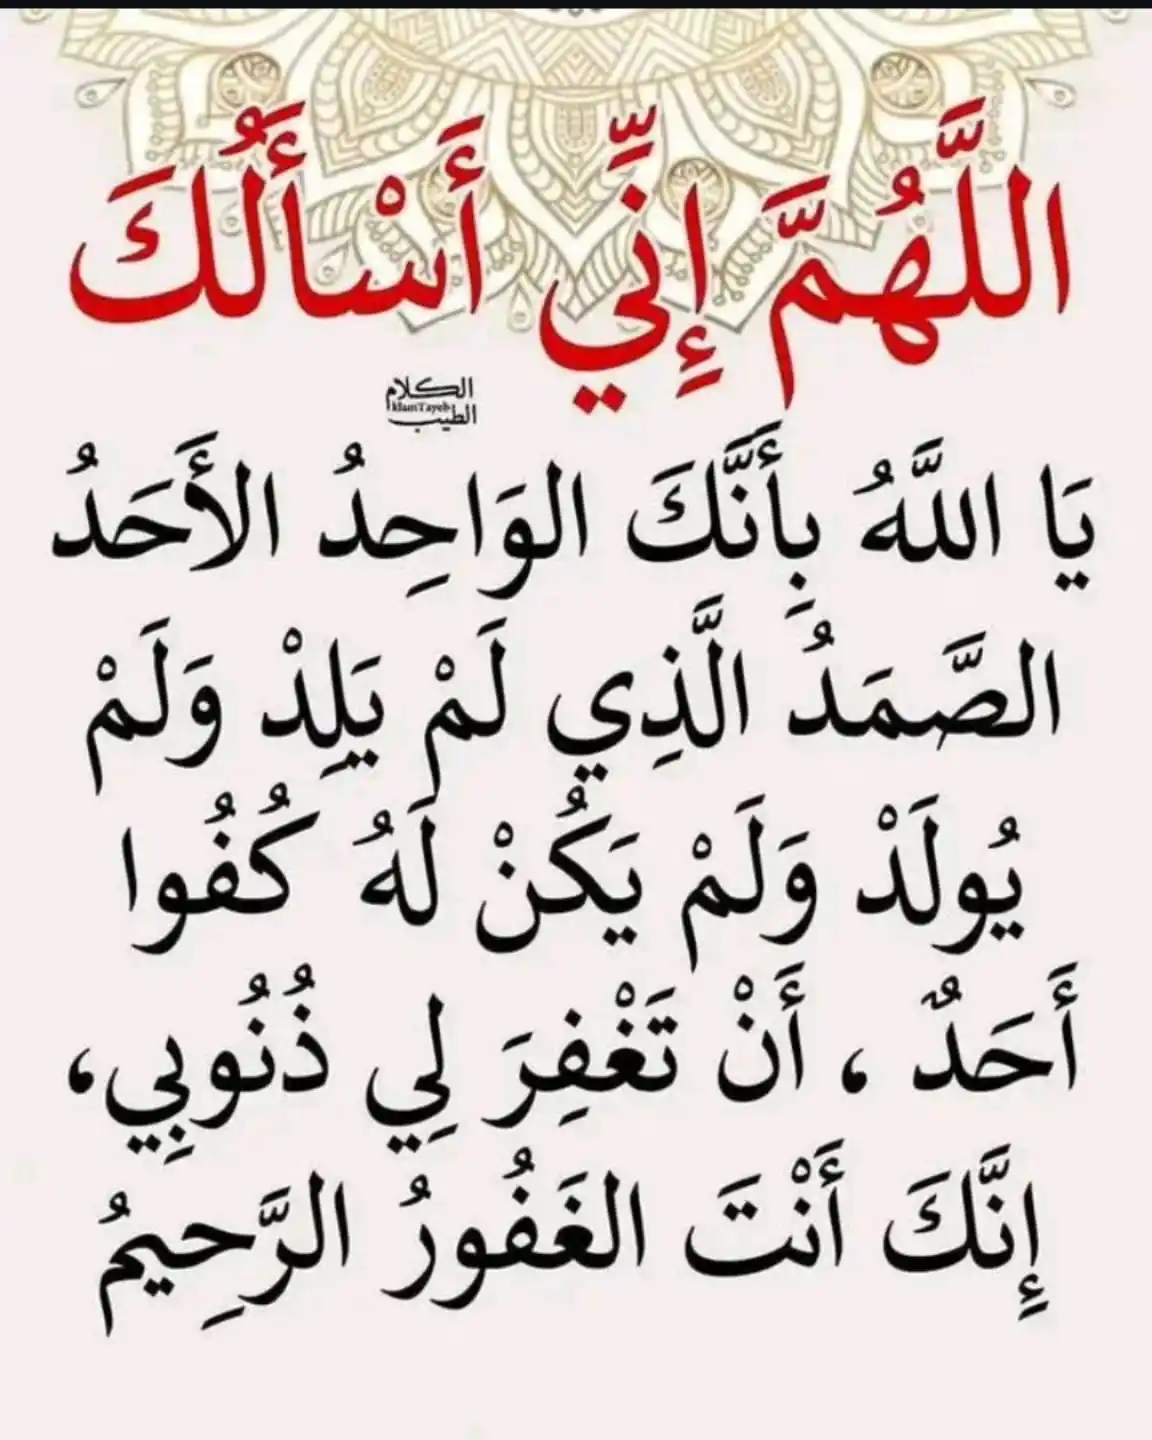 اللَّهُمَّ إِنِّي أَسْأَلُكَ
الكلام
الطيب
يَا اللَّهُ بِأَنَّكَ الوَاحِدُ الأَحَدُ
الصَّمَدُ الَّذِي لَمْ يَلِدْ وَلَمْ
يُولَدْ وَلَمْ يَكُنْ لَهُ كُفُوا
أَحَدٌ ، أَنْ تَغْفِرَ لِي ذُنُوبِي،
إِنَّكَ أَنْتَ الغَفُورُ الرَّحِيمُ